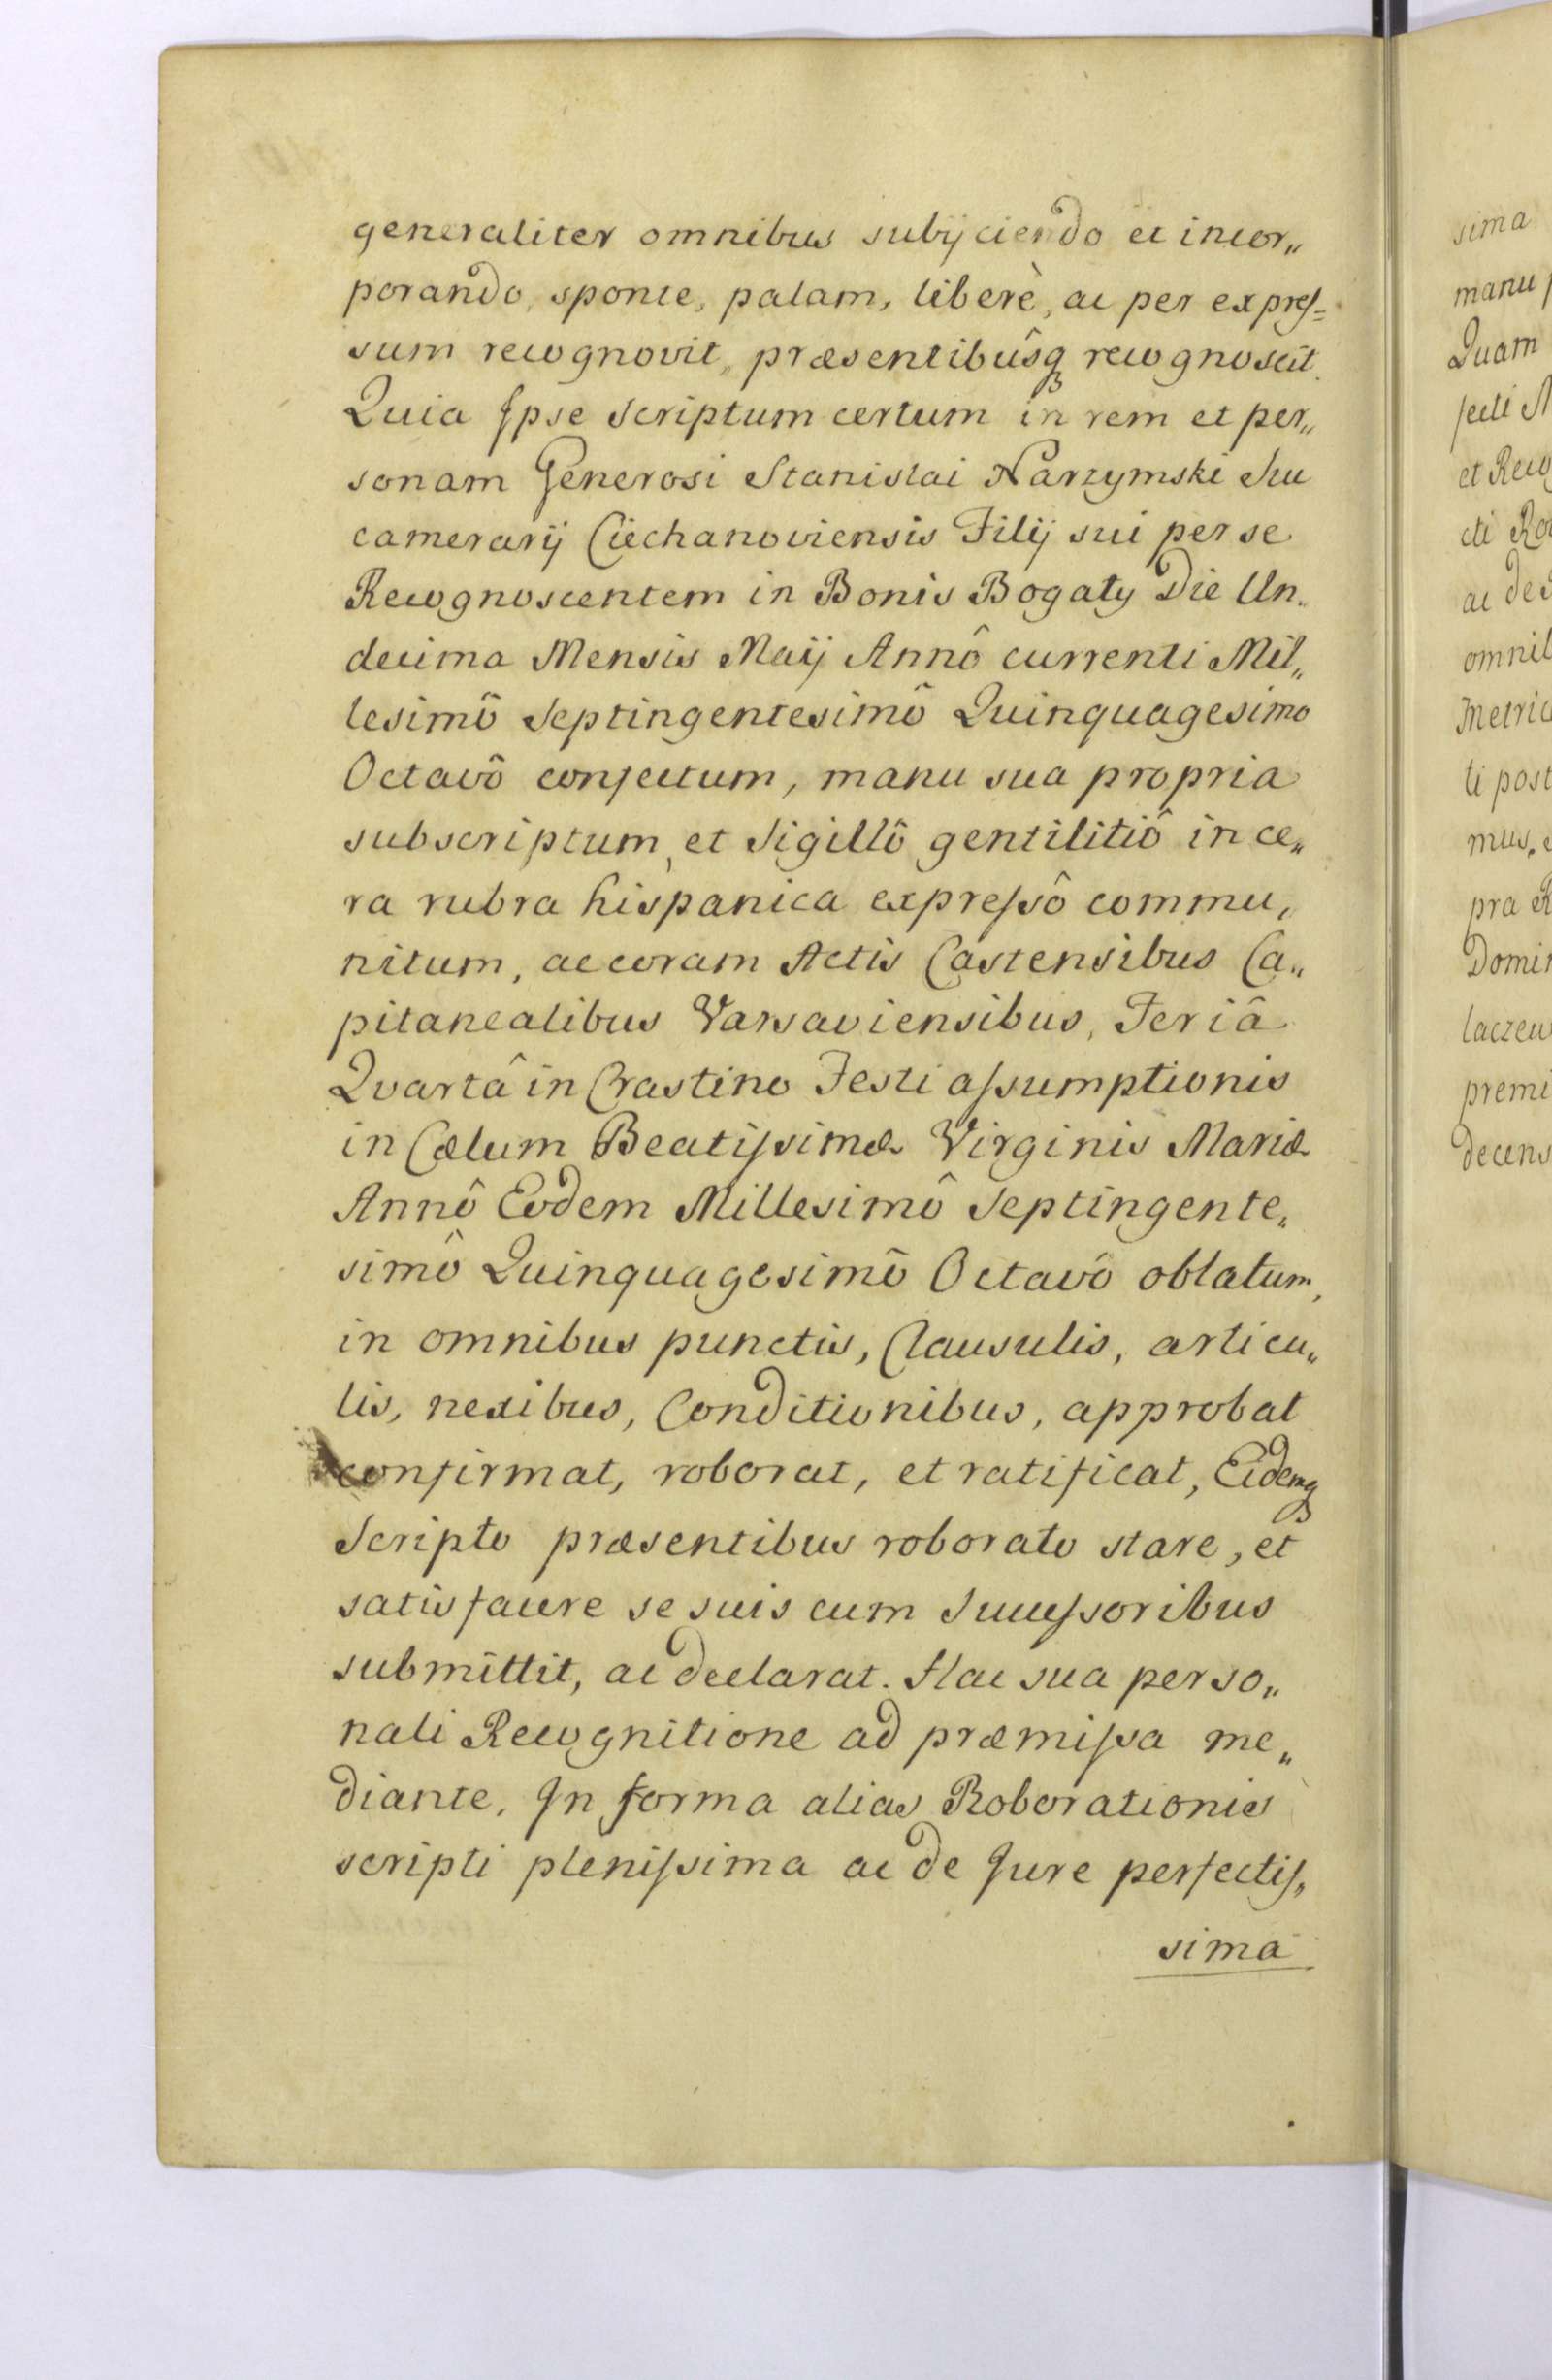 generaliter omnibus subijciendo et incor„
porando, sponte, palam, liberè, ac per expres=
sum recognovit, præsentibûsq recognoscit.
Quia Ipse Scriptum certum in rem et per„
sonam Generosi Stanislai Narzymski Suc
camerarij Ciechanoviensis Filij sui per se
Recognoscentem in Bonis Bogaty Die Un„
decima Mensis Maij Annô currenti Mil„
lesimô Septingentesimô Quinquagesimo
Octavô confectum, manu sua propria
subscriptum, et Sigillô gentilitiô in ce„
ra rubra hispanica expressô commu„
nitum, ac coram Actis Castensibus Ca„
pitanealibus Varsaviensibus, Feriâ
Qvartâ in Crastino Festi assumptionis
in Cælum Beatissimæ Virginis Mariæ
Annô Eodem Millesimô Septingente„
simô Quinquagesimô Octavô oblatum,
in omnibus punctis, Clausulis, articu„
lis, nexibus, Conditionibus, approbat
confirmat, roborat, et ratificat, Eidemq
Scripto præsentibus roborato stare, et
satisfacere se suis cum Successoribus
submittit, ac declarat. Hac sua perso„
nali Recognitione ad præmissa me„
diante, In forma alias Roborationis
scripti plenissima ac de Jure perfectis„
sima
sima
manu
Quam
fecti
et Recog
cti Ro
ac de
omnib
Metric
ti post
mus, e
pra R
Domin
laczew
premi
decens